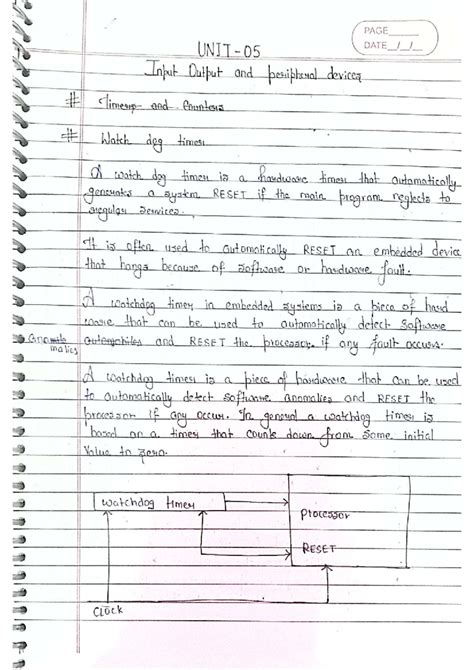 PAGE
DATE / /
UNIT-05
Input Output and peripheral devices
# Timers and Counters
# Watch dog timer
A watch dog timer is a hardware timer that automatically
generates a system RESET if the main program neglects to
regular services.
It is often used to automatically RESET an embedded device
that hangs because of software or hardware fault.
A watchdog timer in embedded systems is a piece of hard
ware that can be used to automatically detect software
and RESET the processor if any fault occurs.
A watchdog timer is a piece of hardware that can be used
to automatically detect software anomalies and RESET the
processor if any occur. In general a watchdog timer is
based on a timer that counts down from some initial
value to zero.
Watchdog timer
Processor
RESET
Clock